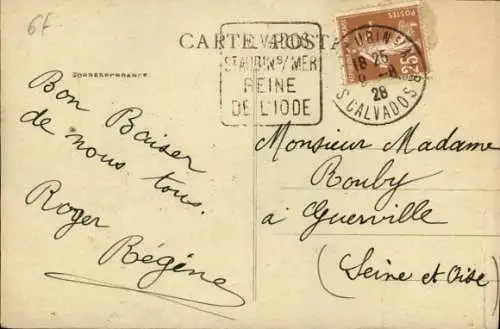 6F
CARTE POSTA
CALVADOS
ST AUBIN S/MER
REINE
DE L'IODE
AUBIN S/MER
18 25
8 -8
28
CALVADOS
POSTES
CORRESPONDANCE
Bon Baiser
de nous tous.
Roger
Régine
Monsieur Madame
Rouby
à Guerville
(Seine et Oise)